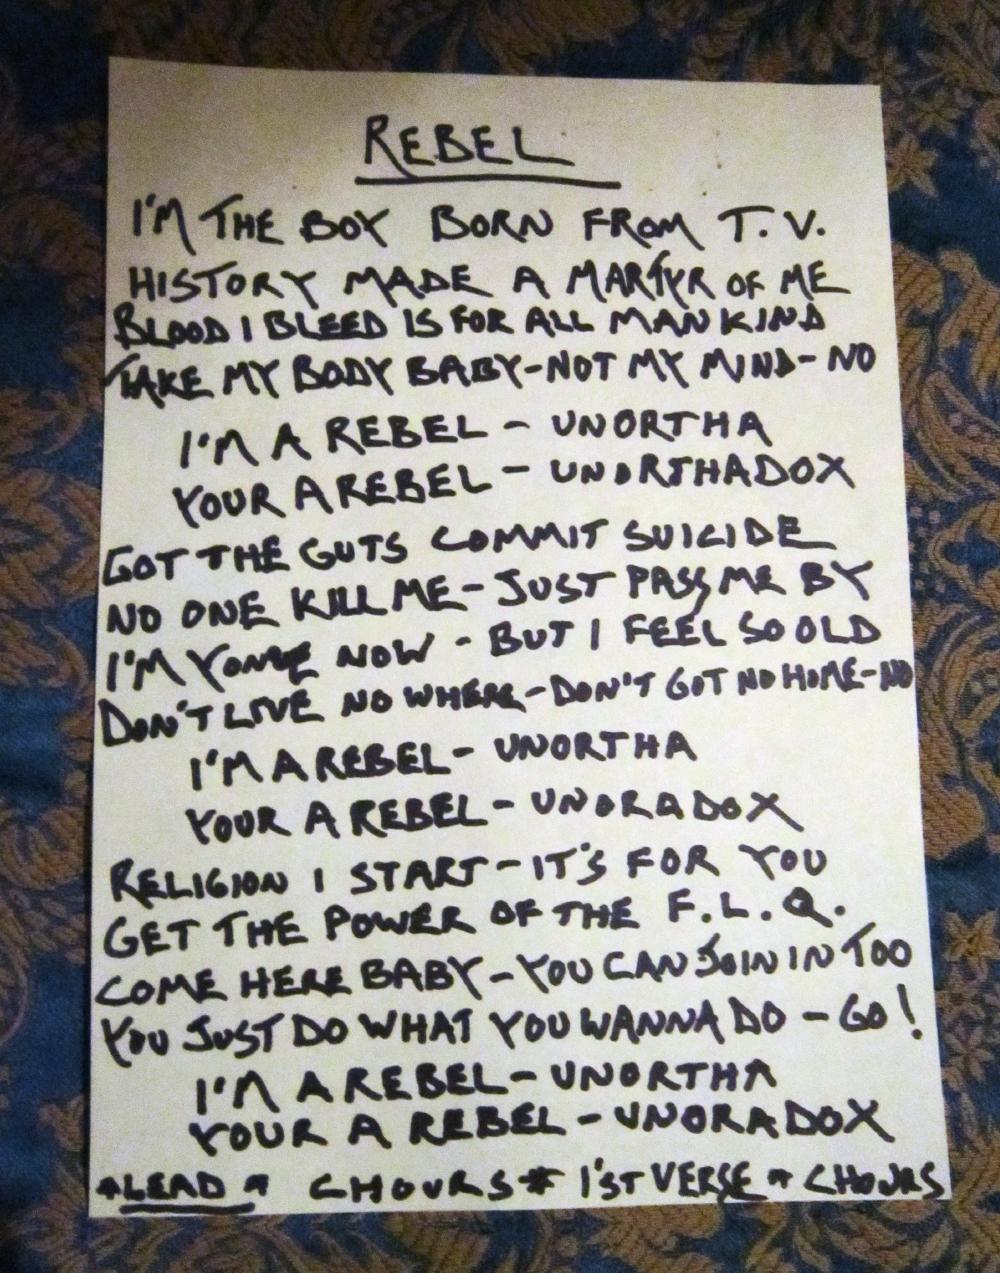 REBEL
I'M THE BOY BORN FROM T.V.
HISTORY MADE A MARTYR OF ME
BLOOD I BLEED IS FOR ALL MAN KIND
TAKE MY BODY BABY-NOT MY MIND-NO
I'M A REBEL - UNORTHA
YOUR A REBEL - UNORTHADOX
GOT THE GUTS COMMIT SUICIDE
NO ONE KILL ME - JUST PASS ME BY
I'M YONGE NOW - BUT I FEEL SO OLD
DON'T LIVE NO WHERE-DON'T GOT NO HOME-NO
I'M A REBEL - UNORTHA
YOUR A REBEL - UNORADOX
RELIGION I START - IT'S FOR YOU
GET THE POWER OF THE F.L.Q.
COME HERE BABY-YOU CAN JOIN IN TOO
YOU JUST DO WHAT YOU WANNA DO - GO!
I'M A REBEL - UNORTHA
YOUR A REBEL - UNORADOX
*LEAD * CHOURS * 1'ST VERSE * CHOURS